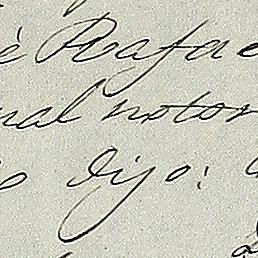 è Rafae
nal notor
o dijo: